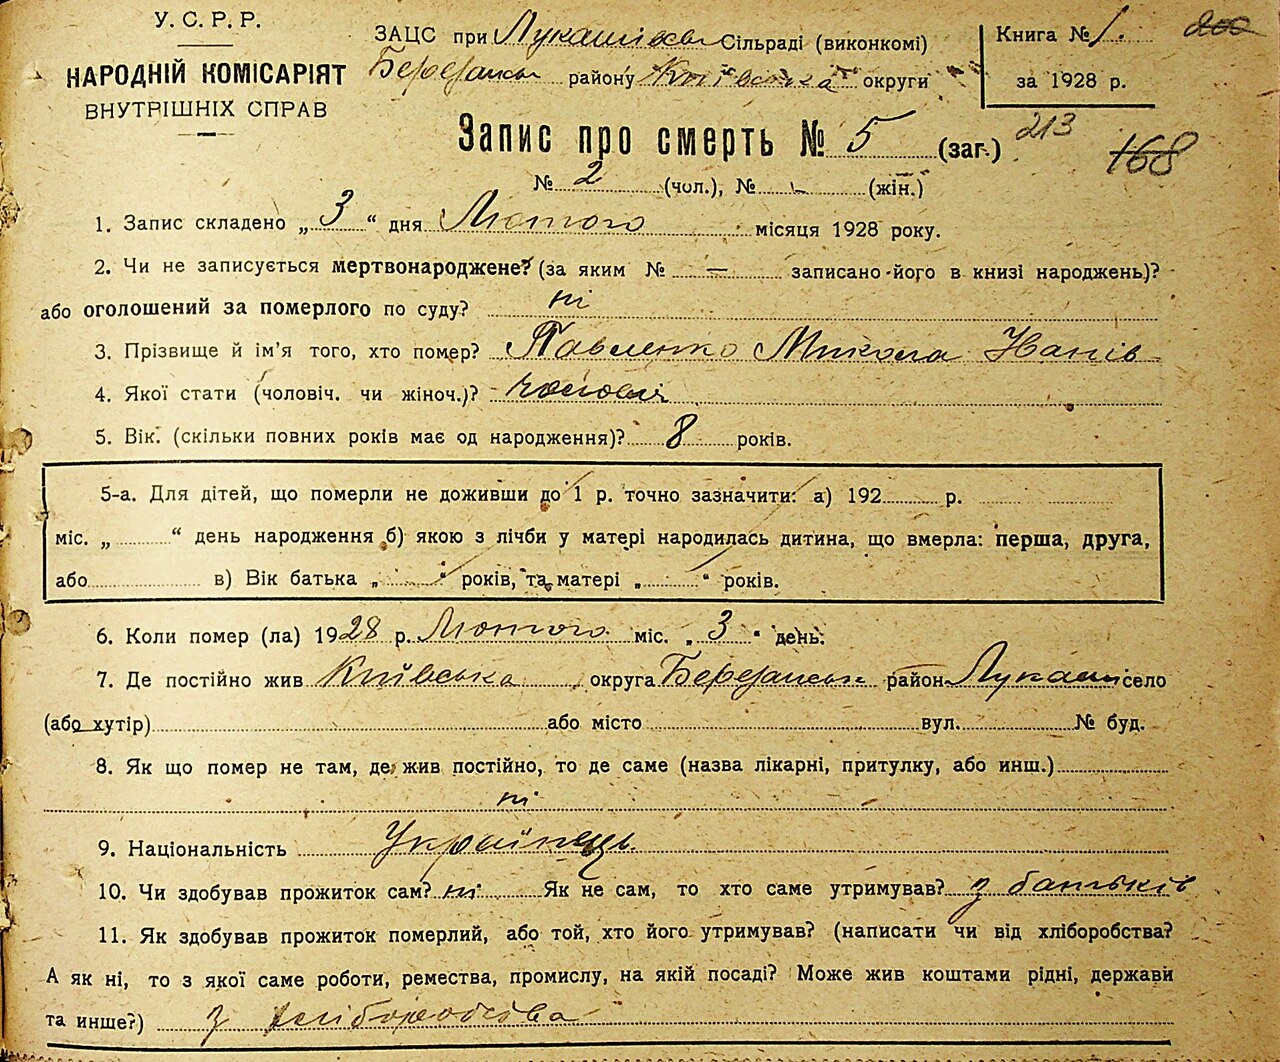 У. С. Р. Р.
НАРОДНІЙ КОМІСАРІЯТ
ВНУТРІШНІХ СПРАВ
ЗАЦС при Лукашівськ Сільраді (виконкомі)
Березанськ району Київська округи
Книга № 1. 200
за 1928 р.
Запис про смерть № 5 (заг.) 213 168
№ 2 (чол.), № - (жін.)
1. Запис складено „ 3 “ дня Лютого місяця 1928 року.
2. Чи не записується мертвонароджене? (за яким № — записано його в книзі народжень)?
або оголошений за померлого по суду? ні
3. Прізвище й ім'я того, хто помер? Павленко Микола
4. Якої стати (чоловіч. чи жіноч.)?
5. Вік. (скільки повних років має од народження)? 8 років.
5-а. Для дітей, що померли не доживши до 1 р. точно зазначити: а) 192 р.
міс. „ “ день народження б) якою з лічби у матері народилась дитина, що вмерла: перша, друга,
або в) Вік батька „ “ років, та матері „ “ років.
6. Коли помер (ла) 1928 р. Лютого міс. „ 3 “ день.
7. Де постійно жив Київська округа Березанськ район Лукаші село
(або хутір) або місто вул. № буд.
8. Як що помер не там, де жив постійно, то де саме (назва лікарні, притулку, або инш.)
ні
9. Національність Українець.
10. Чи здобував прожиток сам? ні Як не сам, то хто саме утримував? з батьків
11. Як здобував прожиток померлий, або той, хто його утримував? (написати чи від хліборобства?
А як ні, то з якої саме роботи, ремества, промислу, на якій посаді? Може жив коштами рідні, держави
та инше?) з хліборобства